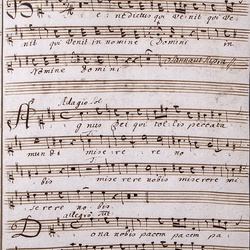 Benedictus qui Venit qui Ve:
nit qui Venit in nomine Domini in
Nomine Domini Osanna ut Supra
Adagio
Agnus Dei qui tollis peccata
mundi miserere no
bis miserere nobis miserere mi
serere nobis
allegro
Dona nobis pacem pacem pa